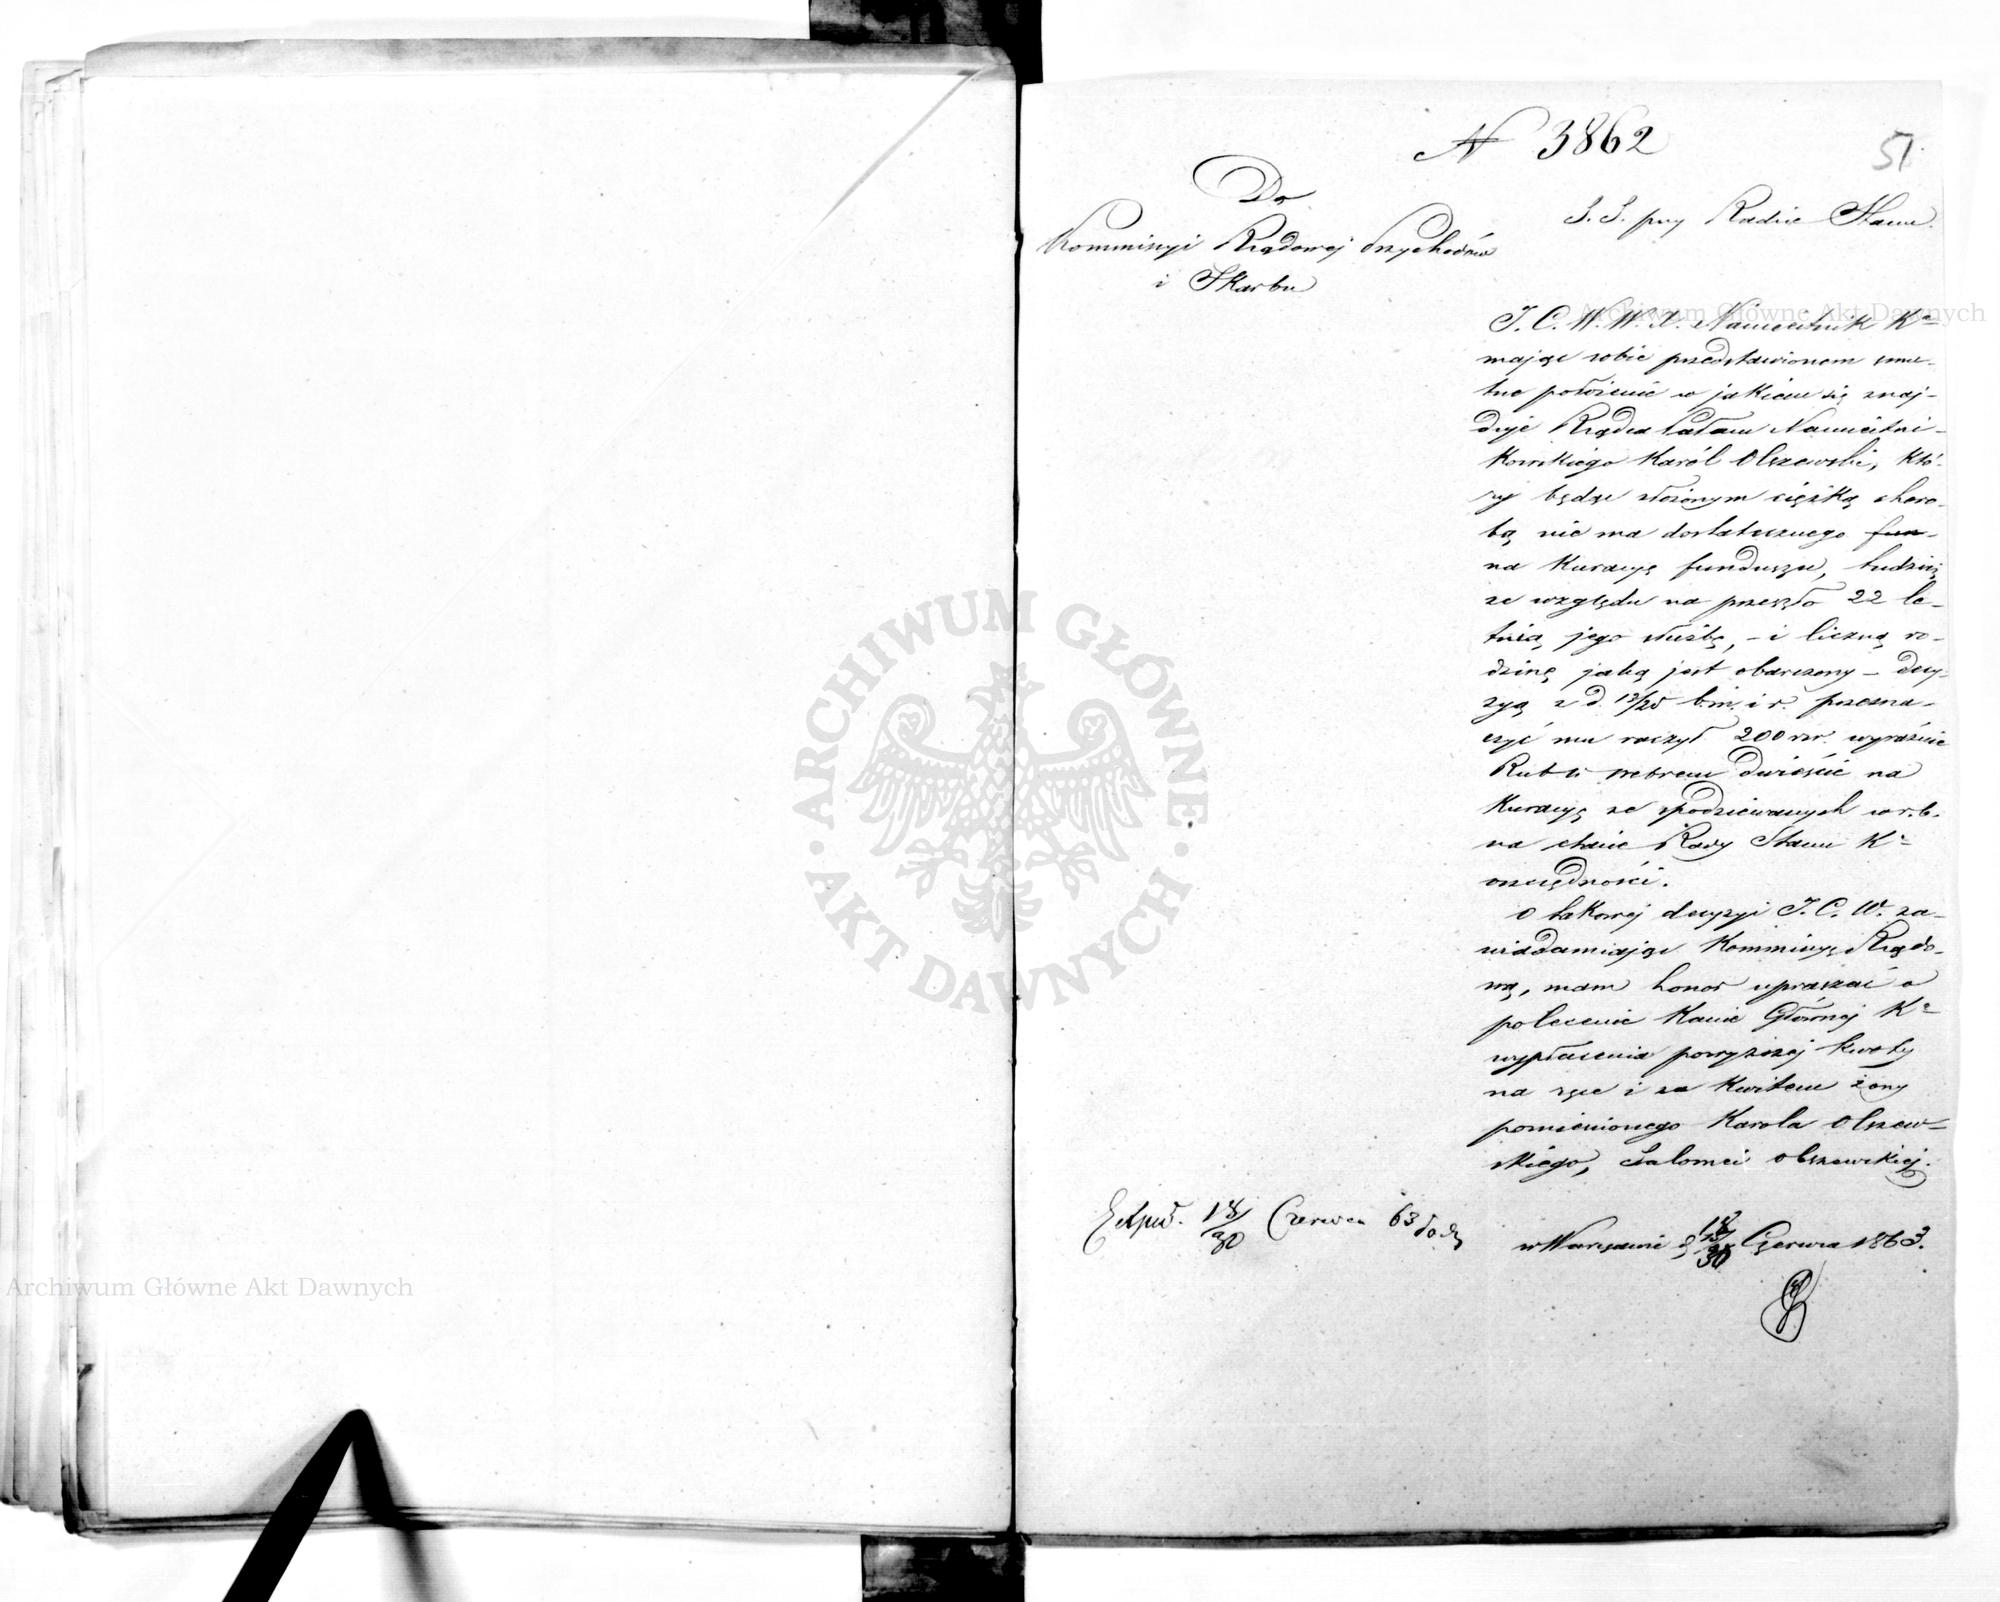 N 3862
51
Do
Kommissyi Rządowej Przychodów
i Skarbu
S. S. przy Radzie Stanu.
J. C. W. W. X. Namiestnik Kr.
mając sobie przedstawionem smu-
tne położenie w jakiem się znaj-
duje Rządca Pałacu Namiestni-
kowskiego Karól Olszewski, któ-
ry będąc złożonym ciężką choro-
bą nie ma dostatecznego fun-
na Kuracyę funduszu, tudzież
ze względu na przeszło 22 le-
tnią jego służbę, - i liczną ro-
dzinę jaką jest obarczony - decy-
zyą z d. 13/25 b.m. i r. przezna-
czyć mu raczył 200 rsr. wyraźnie
Rubli srebrem dwieście na
Kuracyę ze spodziewanych w r.b.
na etacie Rady Stanu Kr.
oszczędności.
O takowej decyzyi J. C. W. za-
wiadamiając Kommissyę Rządo-
wą, mam honor upraszać o
polecenie Kassie Głównej Kr.
wypłacenia powyższej kwoty
na ręce i za kwitem żony
pomienionego Karola Olszew-
skiego, Salomei Olszewskiej.
Exped. 18/30 Czerwca 63
w Warszawie d 18/30 Czerwca 1863.
ARCHIWUM GŁÓWNE
AKT DAWNYCH
Archiwum Główne Akt Dawnych
Archiwum Główne Akt Dawnych